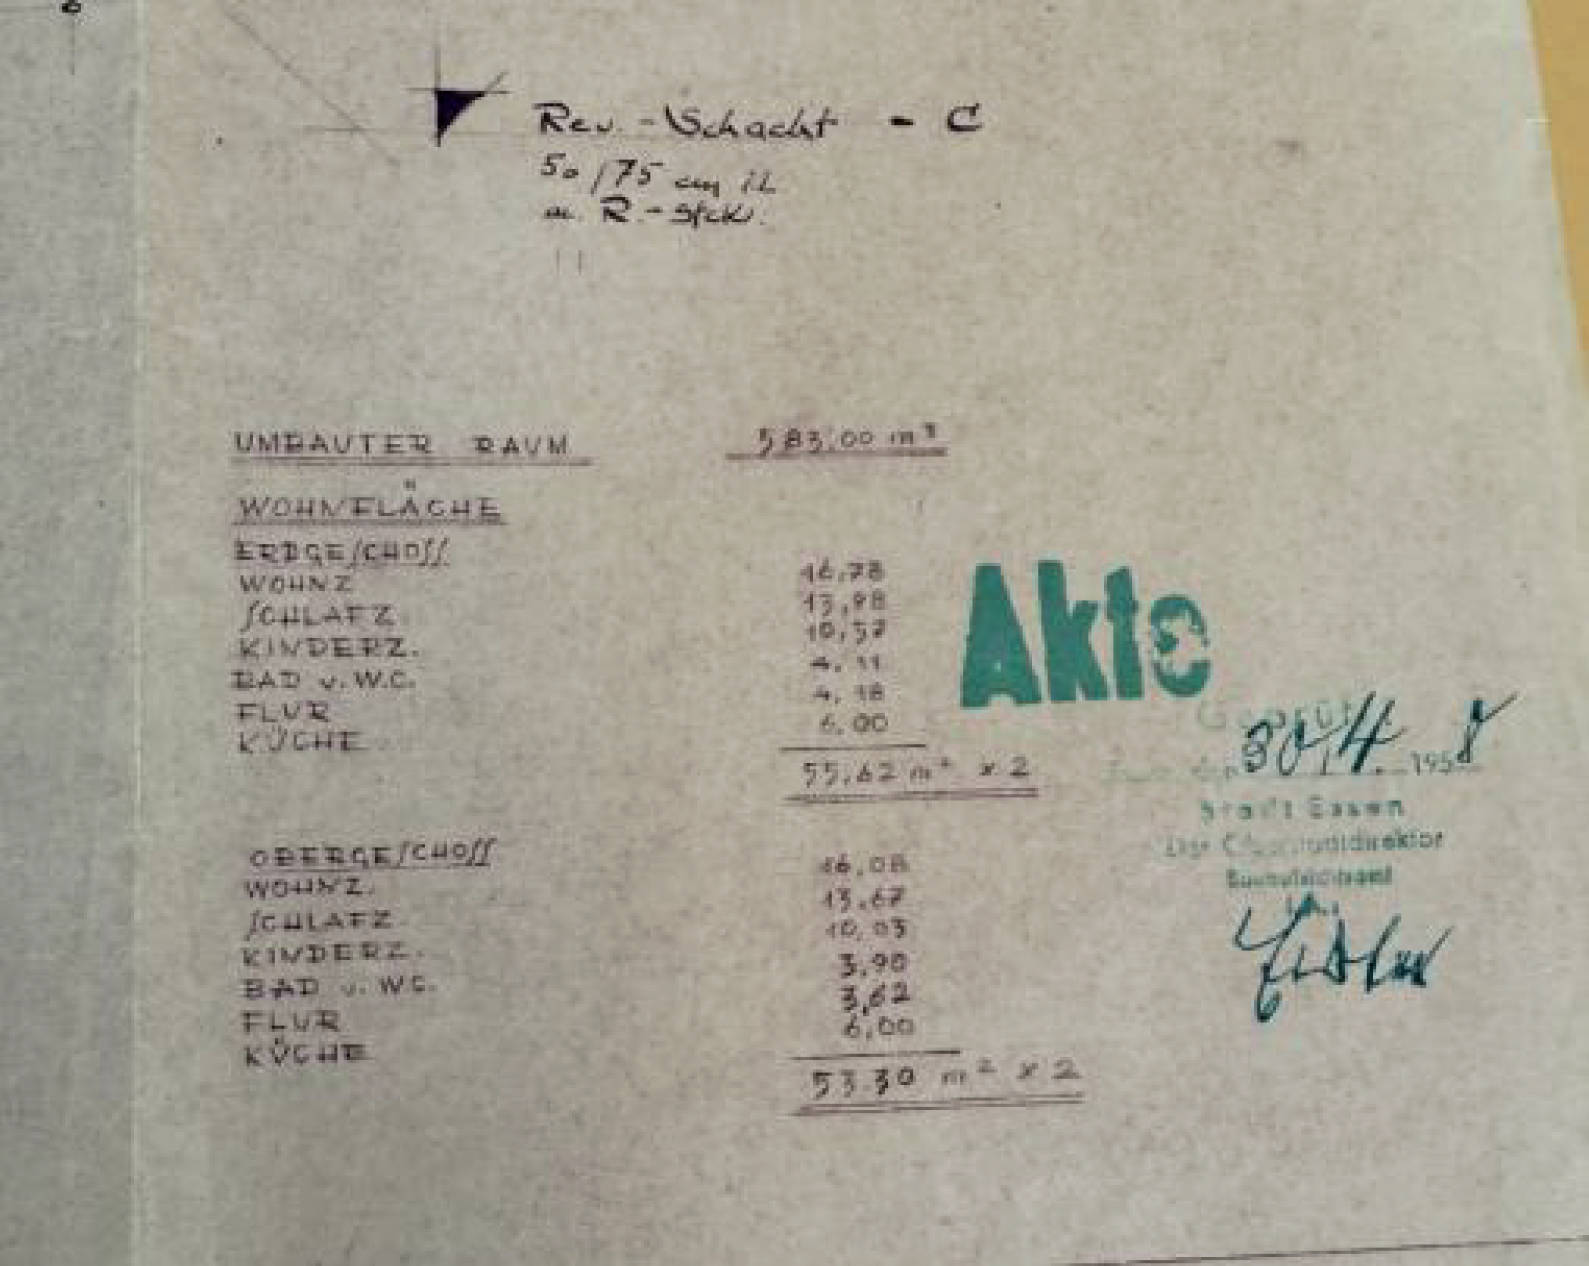 Rev. - Schacht - C
50/75 cm i.L
m. R.-Stck.
UMBAUTER RAUM 583.00 m³
WOHNFLÄCHE
ERDGESCHOSS
WOHNZ 16,78
SCHLAFZ. 13,98
KINDERZ. 10,57
BAD u. W.C. 4,11
FLUR 4,18
KÜCHE 6.00
55,62 m² x 2
Akte
Geprüft
30.4. 1958
Stadt Essen
Der Oberstadtdirektor
Bauaufsichtsamt
I.A.
OBERGESCHOSS
WOHNZ. 16,08
SCHLAFZ. 13,67
KINDERZ. 10,03
BAD u. WC. 3,90
FLUR 3,62
KÜCHE 6,00
53.30 m² x 2